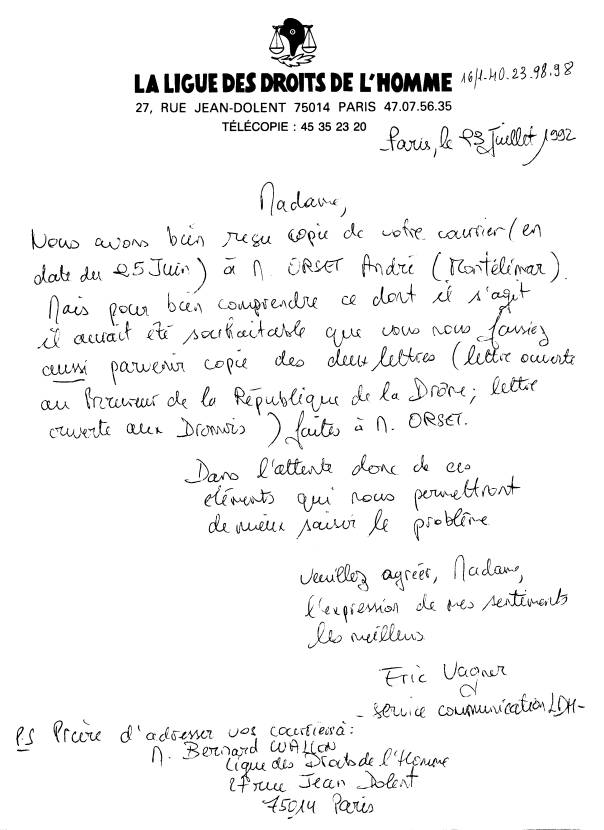 LA LIGUE DES DROITS DE L'HOMME 16/1-40.23.98.98
27, RUE JEAN-DOLENT 75014 PARIS 47.07.56.35
TÉLÉCOPIE : 45 35 23 20
Paris, le 23 Juillet 1992
Madame,
Nous avons bien reçu copie de votre courrier (en
date du 25 Juin) à M. ORSET André (Montélimar).
Mais pour bien comprendre ce dont il s'agit
il aurait été souhaitable que vous nous fassiez
aussi parvenir copie des deux lettres (lettre ouverte
au Procureur de la République de la Drôme; lettre
ouverte aux Dromois) faites à M. ORSET.
Dans l'attente donc de ces
éléments qui nous permettront
de mieux saisir le problème
veuillez agréer, Madame,
l'expression de mes sentiments
les meilleurs
Eric Vagner
- service communication LDH -
PS Prière d'adresser vos courriers à :
M. Bernard WALLON
Ligue des Droits de l'Homme
27 rue Jean Dolent
75014 Paris